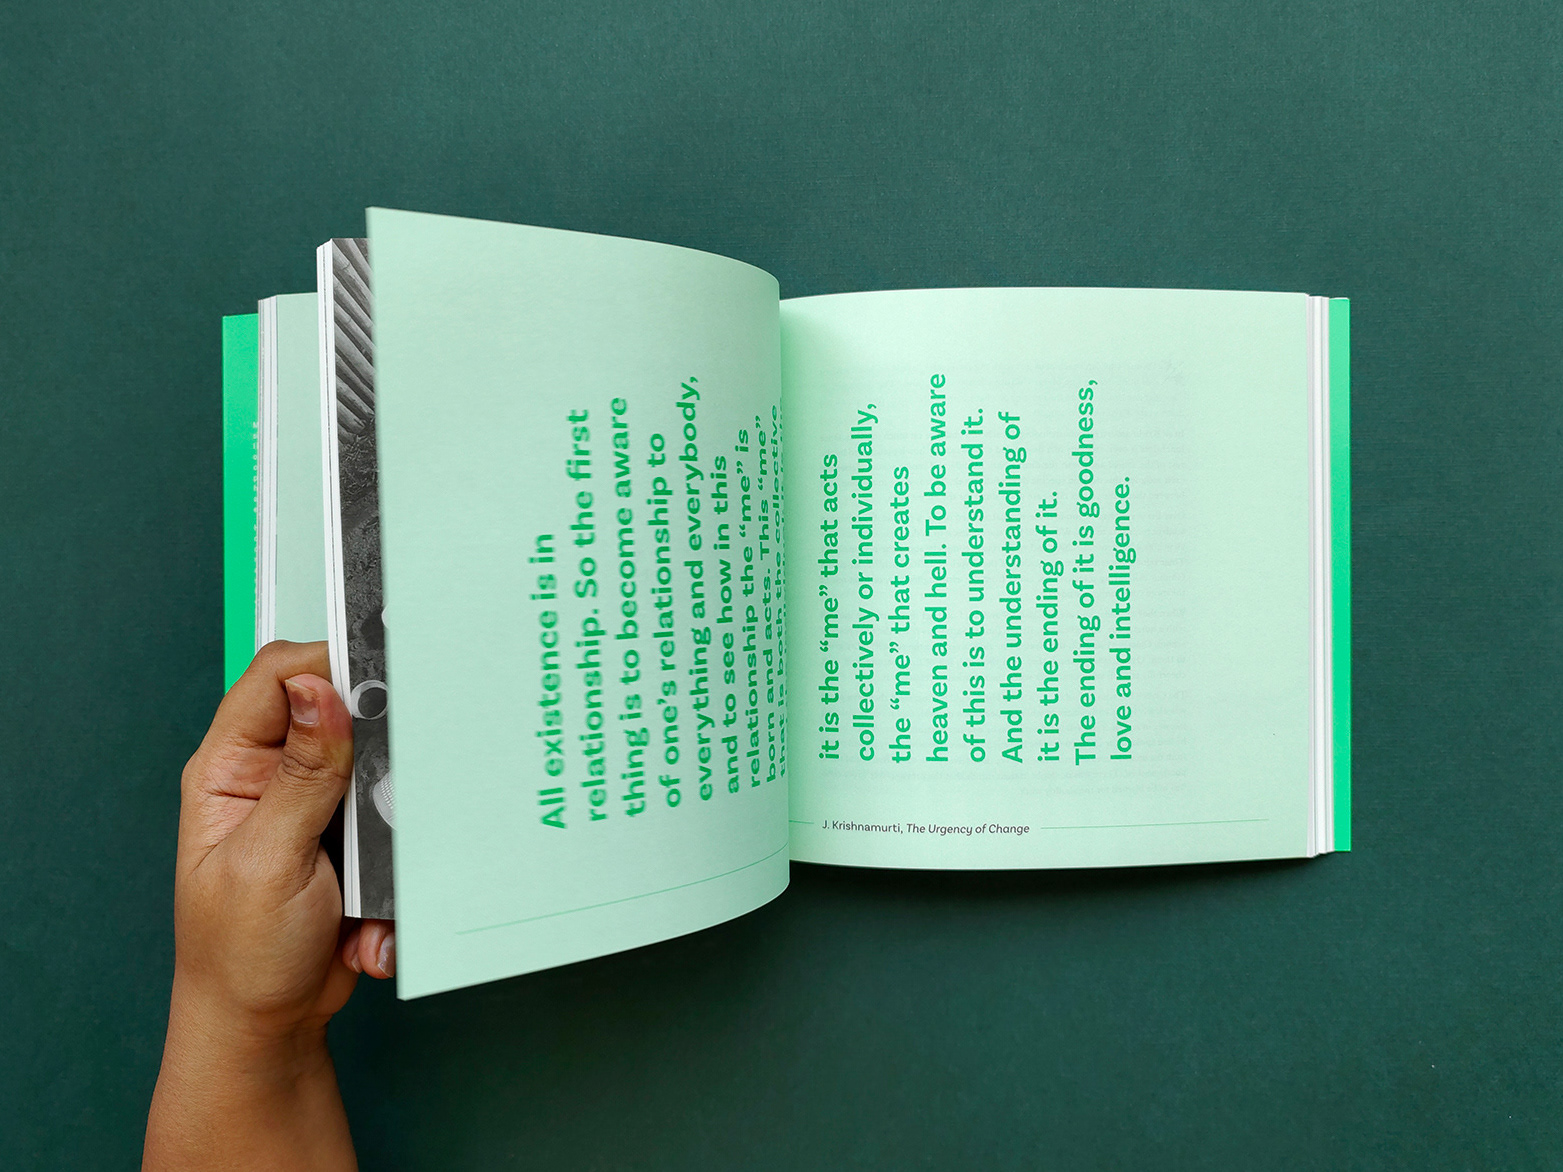 All existence is in
relationship. So the first
thing is to become aware
of one’s relationship to
everything and everybody,
and to see how in this
relationship the “me” is
born and acts. This “me”
that is both the collective
it is the “me” that acts
collectively or individually,
the “me” that creates
heaven and hell. To be aware
of this is to understand it.
And the understanding of
it is the ending of it.
The ending of it is goodness,
love and intelligence.
J. Krishnamurti, The Urgency of Change